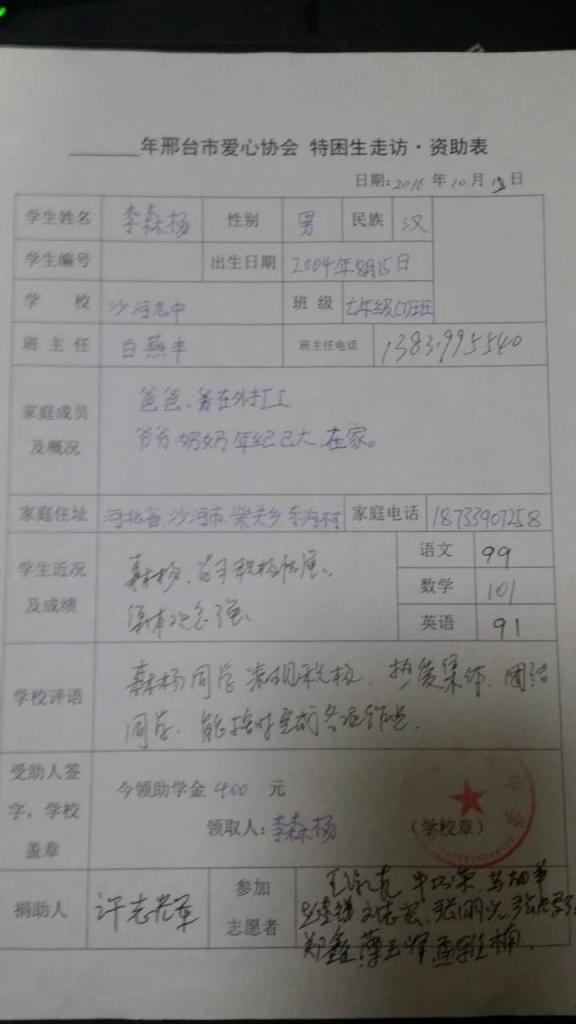 年邢台市爱心协会 特困生走访·资助表
日期:2016年10月 日
学生姓名 李森杨 性别 男 民族 汉
学生编号 出生日期 2004年8月15日
学 校 沙河九中 班 级 七年级(7)班
班 主 任 白燕 班主任电话 1383995540
家庭成员及概况
爸爸、 在外打工
爷爷奶奶年纪已大,在家。
家庭住址 河北省沙河市柴关乡东沟村 家庭电话 18733907258
学生近况及成绩
森杨,
集体观念强。
语文 99
数学 101
英语 91
学校评语
森杨同学表现积极,热爱集体,团结
同学,能按时完成各项作业.
受助人签字,学校盖章
今领助学金 400 元
领取人:李森杨 (学校章)
捐助人 许志 参加志愿者
郑鑫